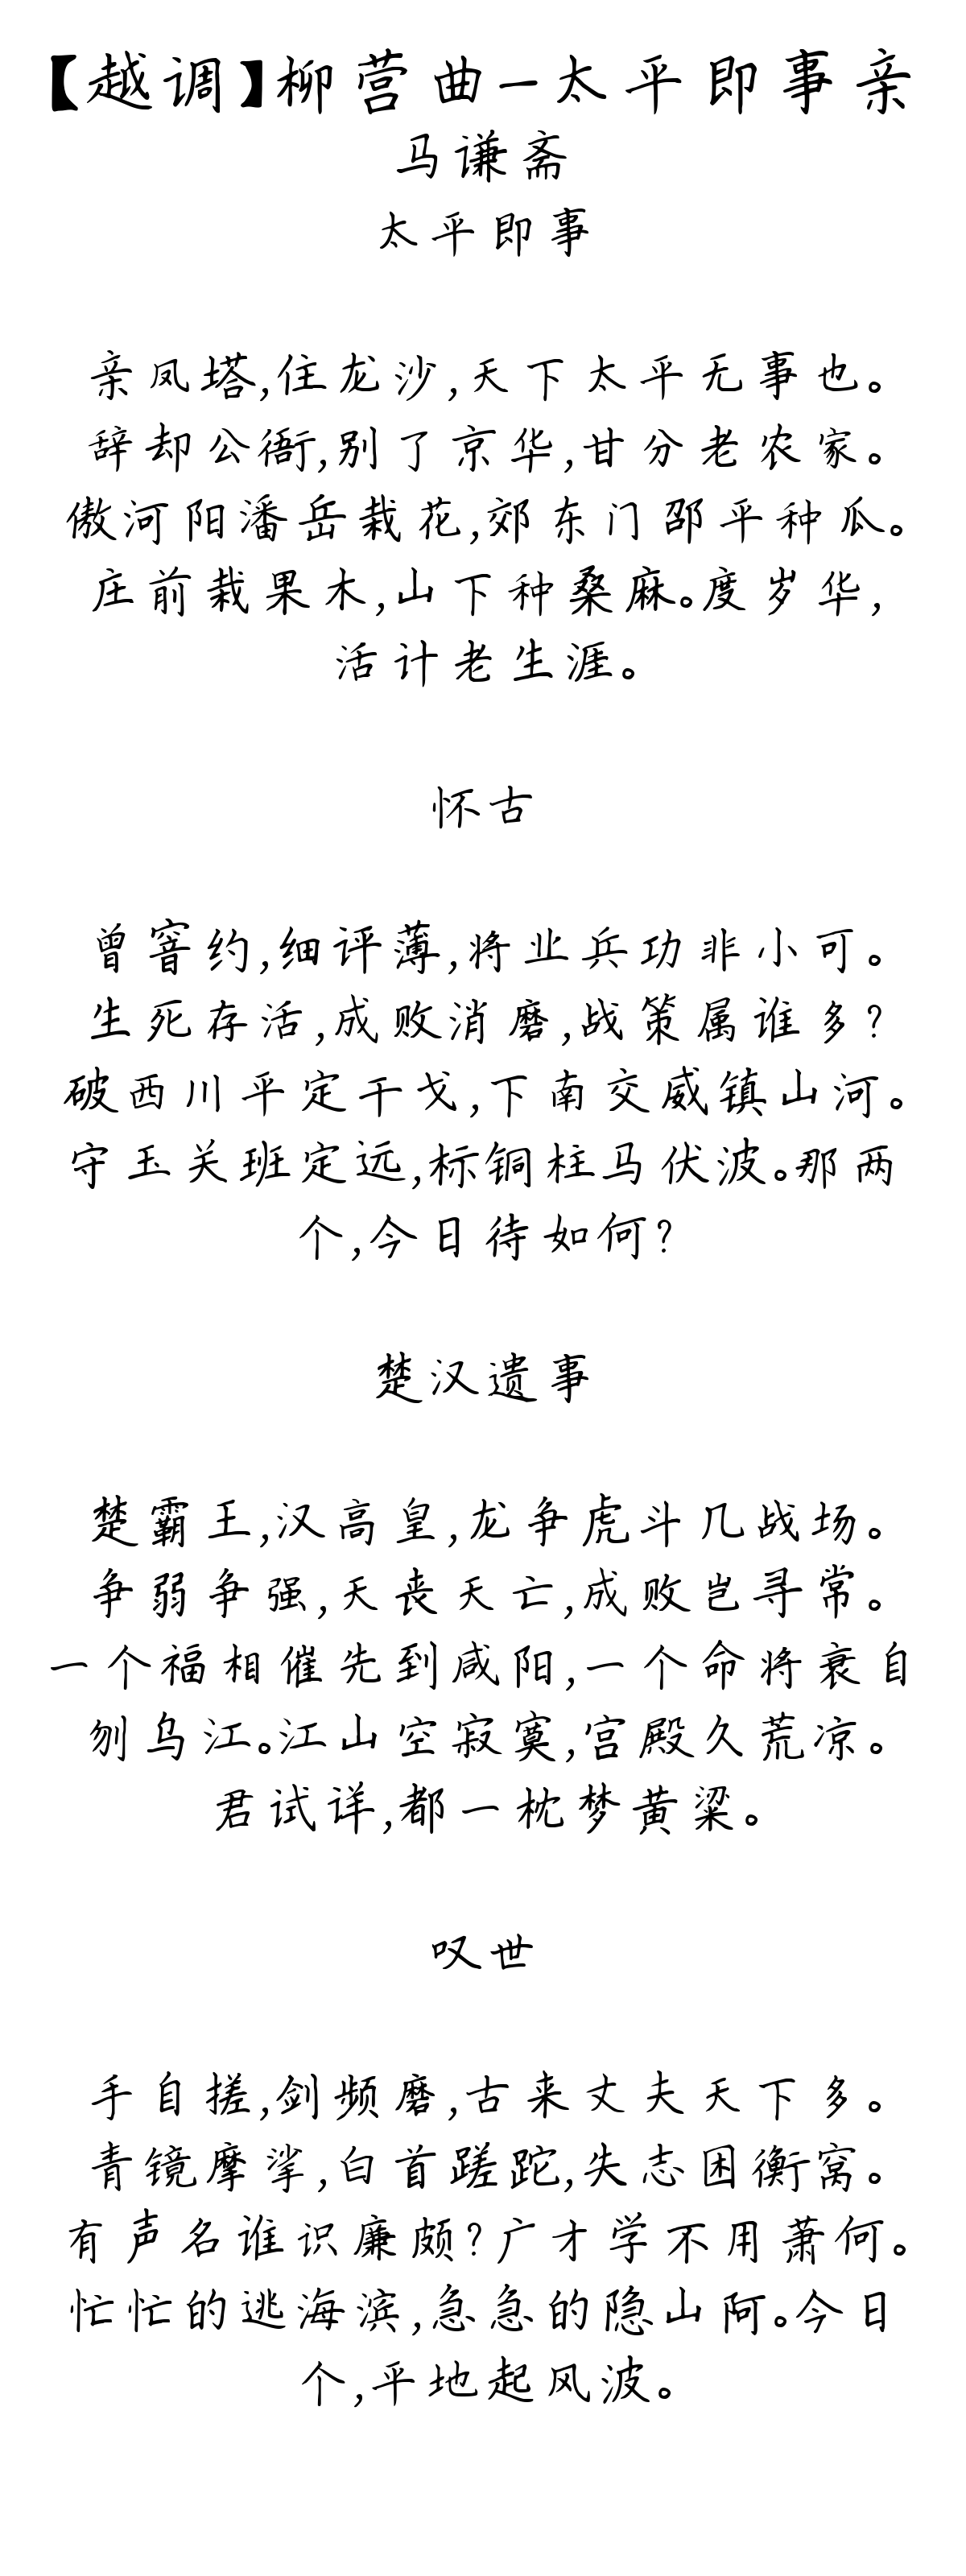 【越调】柳营曲-太平即事亲
马谦斋
太平即事
亲凤塔,住龙沙,天下太平无事也。
辞却公衙,别了京华,甘分老农家。
傲河阳潘岳栽花,郊东门邵平种瓜。
庄前栽果木,山下种桑麻。度岁华,
活计老生涯。
怀古
曾窨约,细评薄,将业兵功非小可。
生死存活,成败消磨,战策属谁多?
破西川平定干戈,下南交威镇山河。
守玉关班定远,标铜柱马伏波。那两
个,今日待如何?
楚汉遗事
楚霸王,汉高皇,龙争虎斗几战场。
争弱争强,天丧天亡,成败岂寻常。
一个福相催先到咸阳,一个命将衰自
刎乌江。江山空寂寞,宫殿久荒凉。
君试详,都一枕梦黄粱。
叹世
手自搓,剑频磨,古来丈夫天下多。
青镜摩挲,白首蹉跎,失志困衡窝。
有声名谁识廉颇?广才学不用萧何。
忙忙的逃海滨,急急的隐山阿。今日
个,平地起风波。